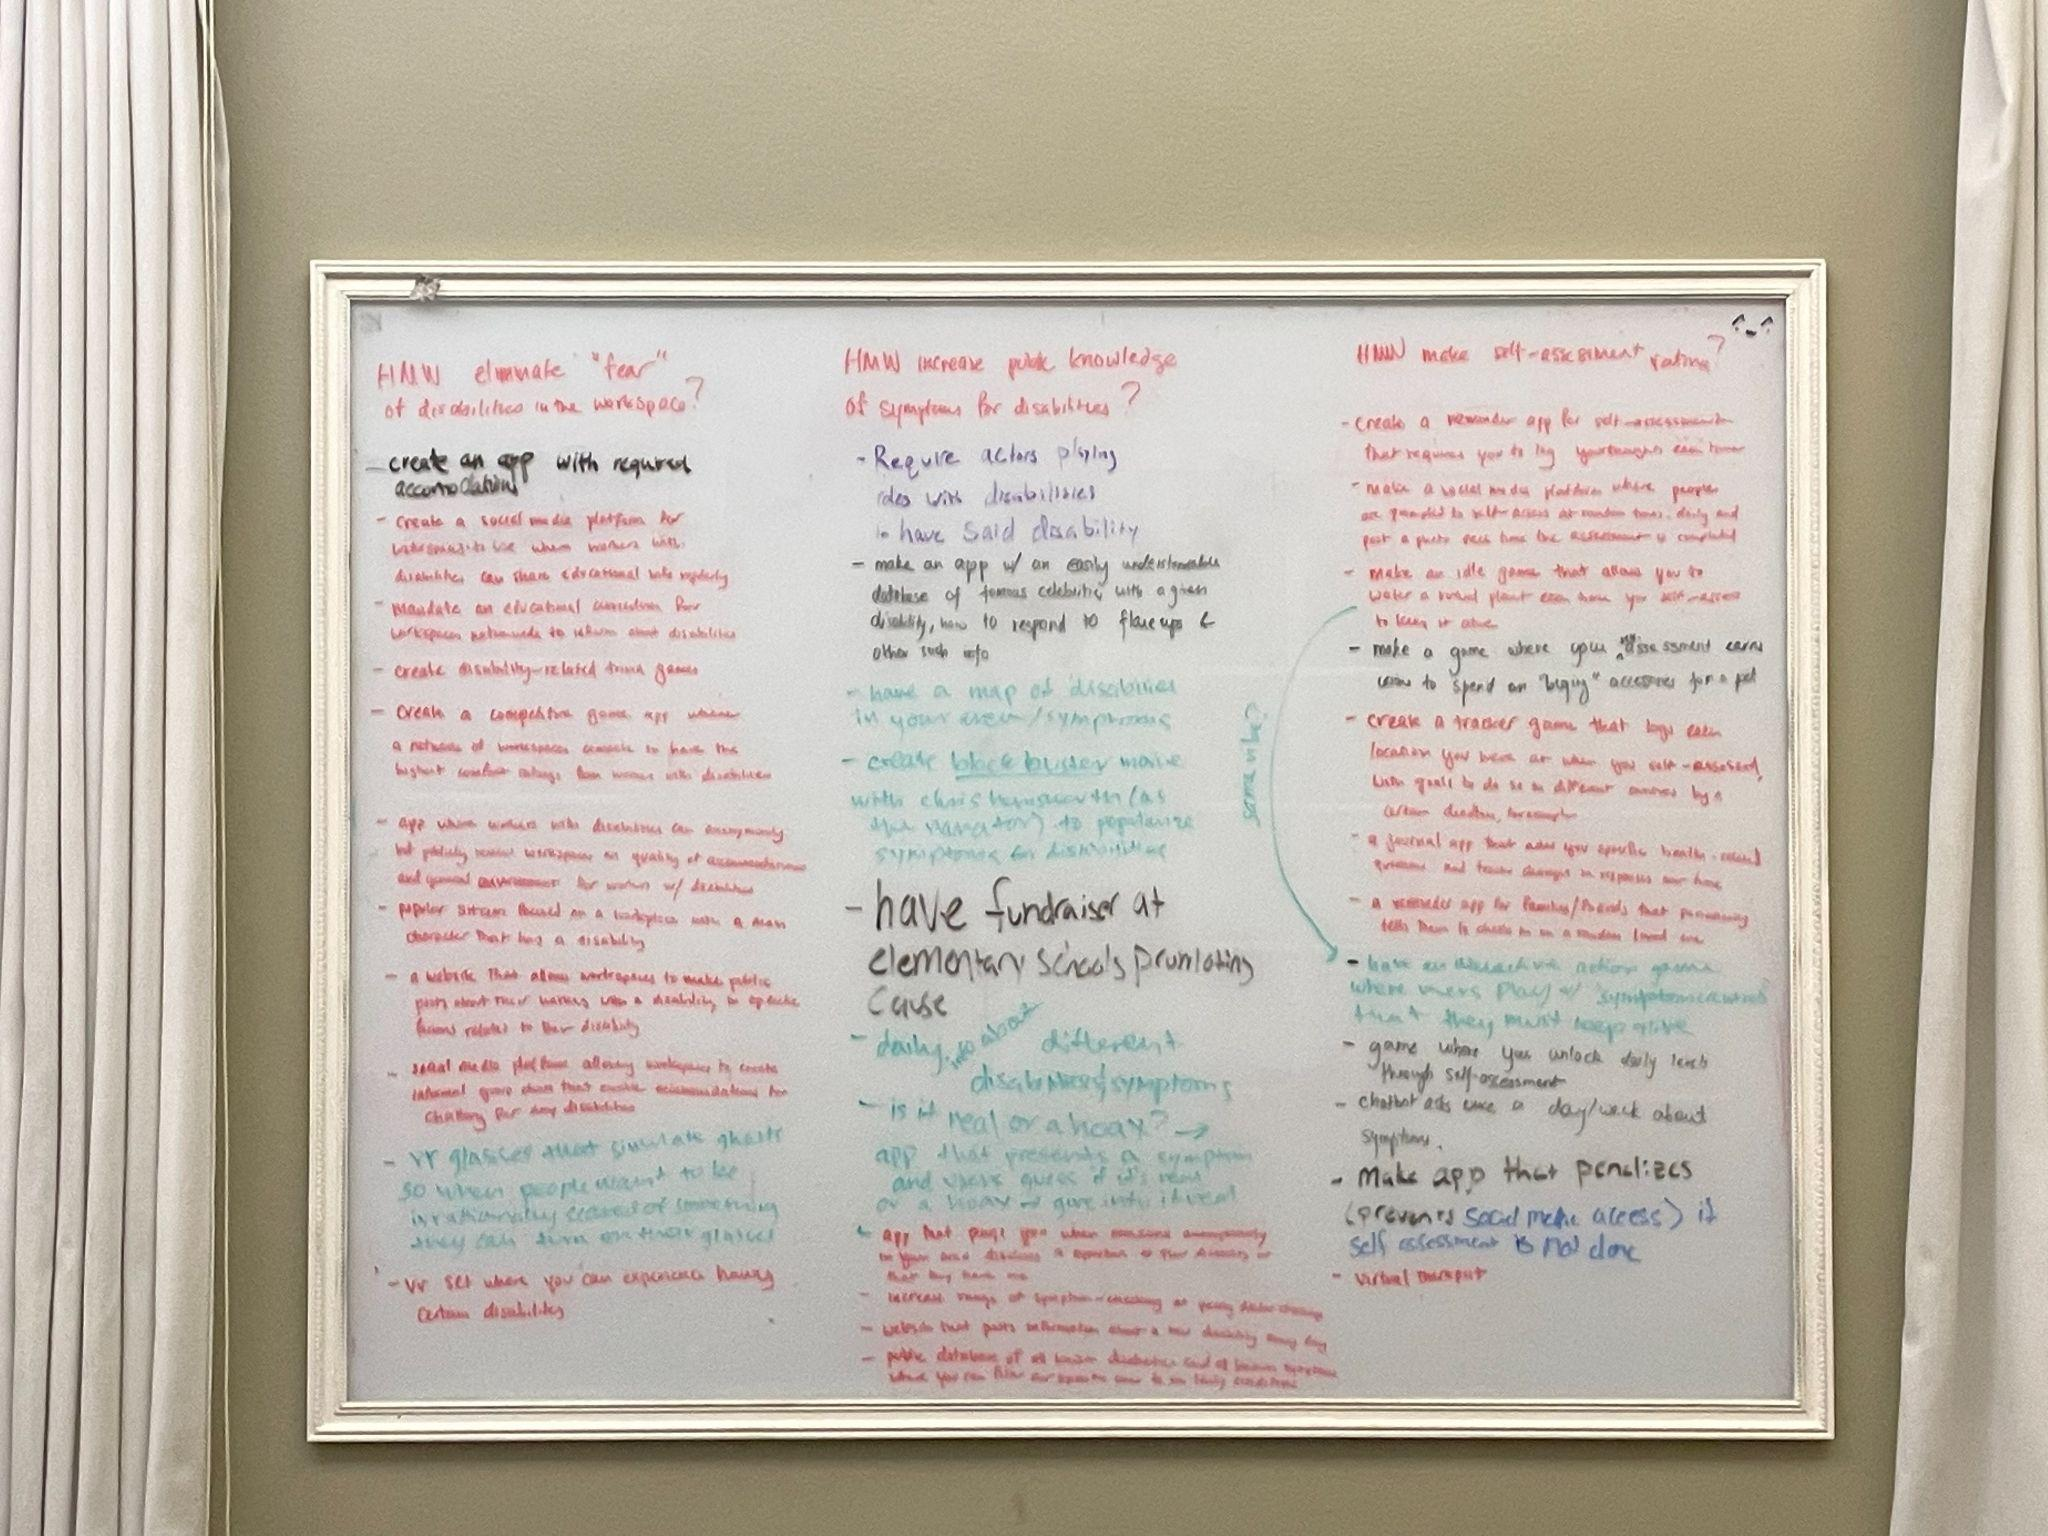 ^-^
HMW eliminate "fear"
of disabilities in the workspace?
- create an app with required
accomodations
- create a social media platform for
workspaces to use where workers with
disabilities can share educational info regularly
- mandate an educational curriculum for
workspaces nationwide to inform about disabilities
- create disability-related trivia games
- create a competitive game app whenever
a network of workspaces compete to have the
highest comfort ratings from workers with disabilities
- app where workers with disabilities can anonymously
but publicly review workspaces on quality of accommodations
and general environment for workers w/ disabilities
- popular sitcom focused on a workplace with a main
character that has a disability
- a website that allows workspaces to make public
posts about their workers with a disability, or specific
related to their disability
- social media platform allowing workspaces to create
informal group chats that enable accommodations for
chatting for any disabilities
- vr glasses that simulate ghosts
so when people want to be
irrationally scared of something
they can turn on their glasses
- vr set where you can experience having
certain disability
HMW increase public knowledge
of symptoms for disabilities?
- Require actors playing
roles with disabilities
to have said disability
- make an app w/ an easily understandable
database of famous celebrities with a given
disability, how to respond to flare ups &
other such info
- have a map of disabilities
in your area/symptoms
- create block buster movie
with chris hemsworth (as
the narrator) to popularize
symptoms for disabilities
- have fundraiser at
elementary schools promoting
cause
- daily info about different
disabilities/symptoms
- is it real or a hoax? →
app that presents a symptom
and users guess if it's real
or a hoax → give info if real
- app that pings you when someone anonymously
in your area discloses a symptom of their disability
that they have
- increase range of symptom-checking at yearly doctor checkups
- website that posts information about a new disability every day
- public database of all known disabilities and all known symptoms
where you can filter symptoms to see likely conditions
same vibe?
HMW make self-assessment rating?
- create a reminder app for self-assessment
that requires you to log your thoughts each time
- make a social media platform where people
are prompted to self-assess at random times daily and
post a photo each time the assessment is completed
- make an idle game that allows you to
water a virtual plant each time you self-assess
to keep it alive
- make a game where your assessment earns
coins to spend on "buying" accessories for a pet
- create a tracker game that logs each
location you were at when you self-assessed,
with goals to do so in different by a
certain deadline, for example
- a journal app that asks you specific health-related
questions and tracks changes in responses over time
- a reminder app for families/friends that
tells them to check in on a random loved one
- have an interactive action game
where users play w/ symptom
that they must keep alive
- game where you unlock daily levels
through self-assessment
- chatbot asks once a day/week about
symptoms.
- Make app that penalizes
(prevents social media access) if
self assessment is not done
- virtual therapist